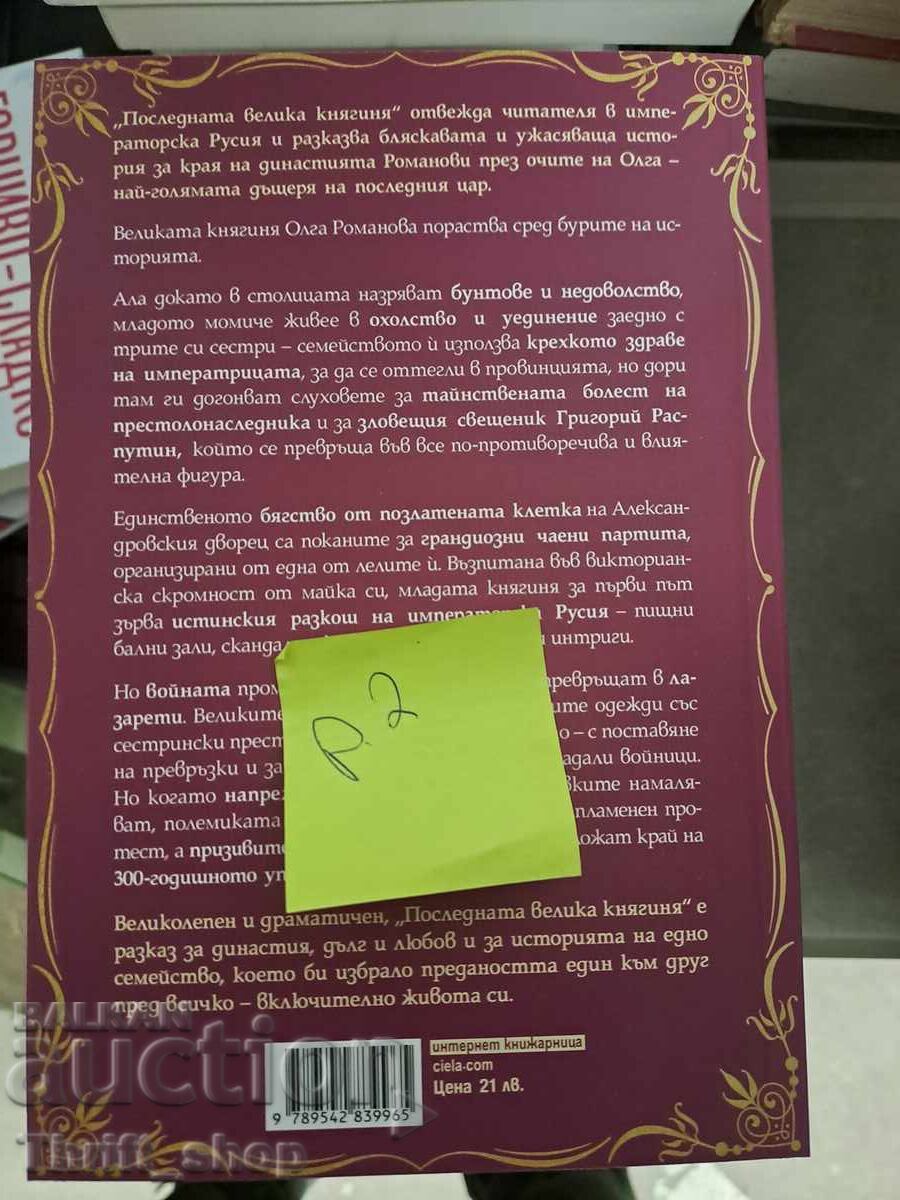 „Последната велика княгиня“ отвежда читателя в импе-
раторска Русия и разказва бляскавата и ужасяваща исто-
рия за края на династията Романови през очите на Олга –
най-голямата дъщеря на последния цар.
Великата княгиня Олга Романова пораства сред бурите на ис-
торията.
Ала докато в столицата назряват бунтове и недоволство,
младото момиче живее в охолство и уединение заедно с
трите си сестри – семейството ѝ използва крехкото здраве
на императрицата, за да се оттегли в провинцията, но дори
там ги догонват слуховете за тайнствената болест на
престолонаследника и за зловещия свещеник Григорий Рас-
путин, който се превръща във все по-противоречива и влия-
телна фигура.
Единственото бягство от позлатената клетка на Алексан-
дровския дворец са поканите за грандиозни чаени партита,
организирани от една от лелите ѝ. Възпитана във викториан-
ска скромност от майка си, младата княгиня за първи път
зърва истинския разкош на Русия – пищни
бални зали, интриги.
Но войната превръщат в ла-
зарети. Великите одежди със
сестрински – с поставяне
на превръзки и войници.
Но когато намаля-
ват, полемиката пламенен про-
тест, а край на
300-годишното
Великолепен и драматичен, „Последната велика княгиня“ е
разказ за династия, дълг и любов и за историята на едно
семейство, което би избрало предаността един към друг
пред всичко – включително живота си.
p. 2
интернет книжарница
ciela.com
Цена 21 лв.
9 789542 839965
BALKAN
auction
Thrift shop